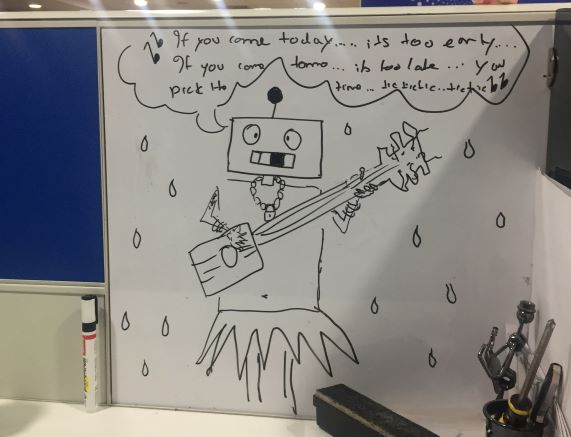 If you come today.... its too early....
If you come tomo... its too late... you
pick the time... tic tic tic... tic tic